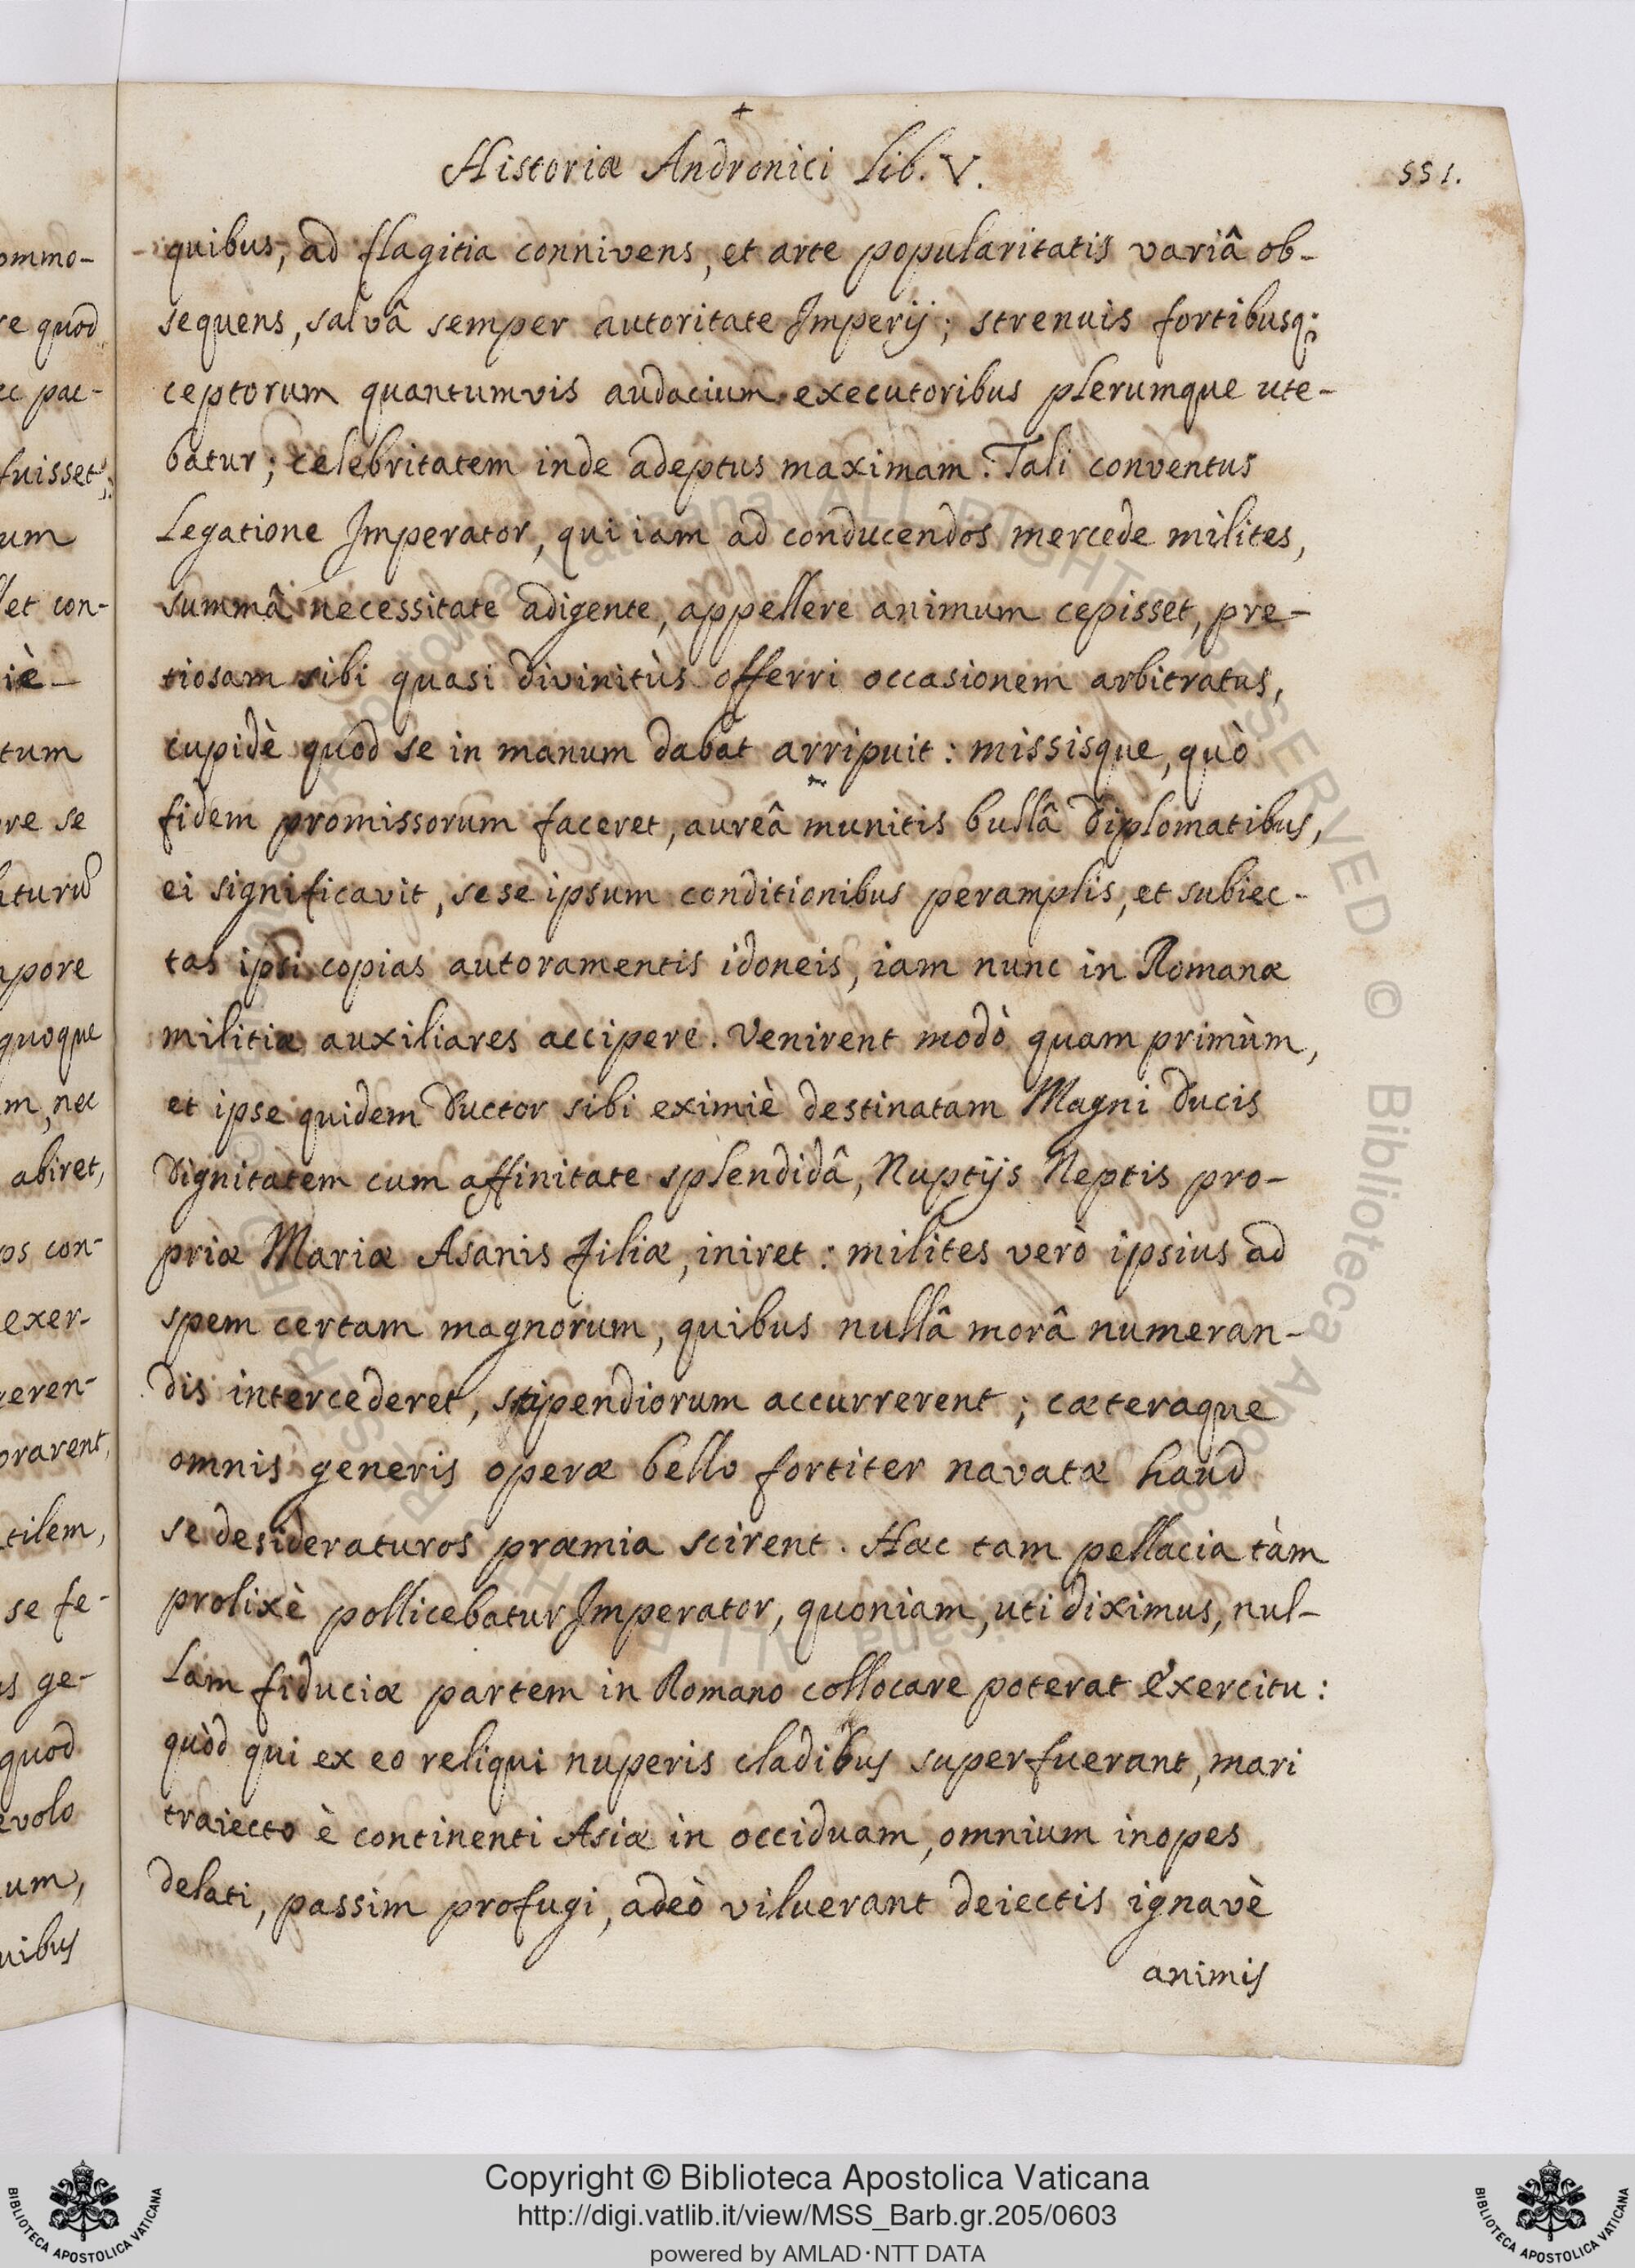 +
Historiæ Andronici Lib. V.
551.
quibus, ad flagitia connivens, et arte popularitatis variâ ob-
sequens, salvâ semper autoritate Imperij; strenuis fortibusq;
ceptorum quantumvis audacium executoribus plerumque ute-
batur; celebritatem inde adeptus maximam. Tali conventus
Legatione Imperator, qui iam ad conducendos mercede milites,
summâ necessitate adigente, appellere animum cepisset, pre-
tiosam sibi quasi divinitùs offerri occasionem arbitratus,
cupidè quod se in manum dabat arripuit: missisque, quò
fidem promissorum faceret, aureâ munitis bullâ diplomatibus,
ei significavit, sese ipsum conditionibus peramplis, et subiec-
tas ipsi copias autoramentis idoneis, iam nunc in Romanæ
militiæ auxiliares accipere. Venirent modò quam primùm,
et ipse quidem Ductor sibi eximiè destinatam Magni Ducis
Dignitatem cum affinitate splendidâ, Nuptijs Neptis pro-
priæ Mariæ Asanis Filiæ, iniret: milites verò ipsius ad
spem certam magnorum, quibus nullâ morâ numeran-
dis intercederet, stipendiorum accurrerent; cæteraque
omnis generis operæ bello fortiter navatæ haud
se desideraturos præmia scirent. Hac tam pellacia tàm
prolixè pollicebatur Imperator, quoniam, uti diximus, nul-
lam fiduciæ partem in Romano collocare poterat Exercitu:
quòd qui ex eo reliqui nuperis cladibus superfuerant, mari
traiecto è continenti Asiæ in occiduam, omnium inopes
delati, passim profugi, adeò viluerant deiectis ignavè
animis
ommo-
re quod
ec pac-
fuisset;
um
let con-
iè-
tum
ore se
apore
quoque
m, nec
abiret,
ps con-
exer-
eren-
orarent,
tilem,
se fe-
s ge-
quod
evolo
um,
uibus
Copyright © Biblioteca Apostolica Vaticana
http://digi.vatlib.it/view/MSS_Barb.gr.205/0603
powered by AMLAD·NTT DATA
BIBLIOTECA APOSTOLICA VATICANA
BIBLIOTECA APOSTOLICA VATICANA